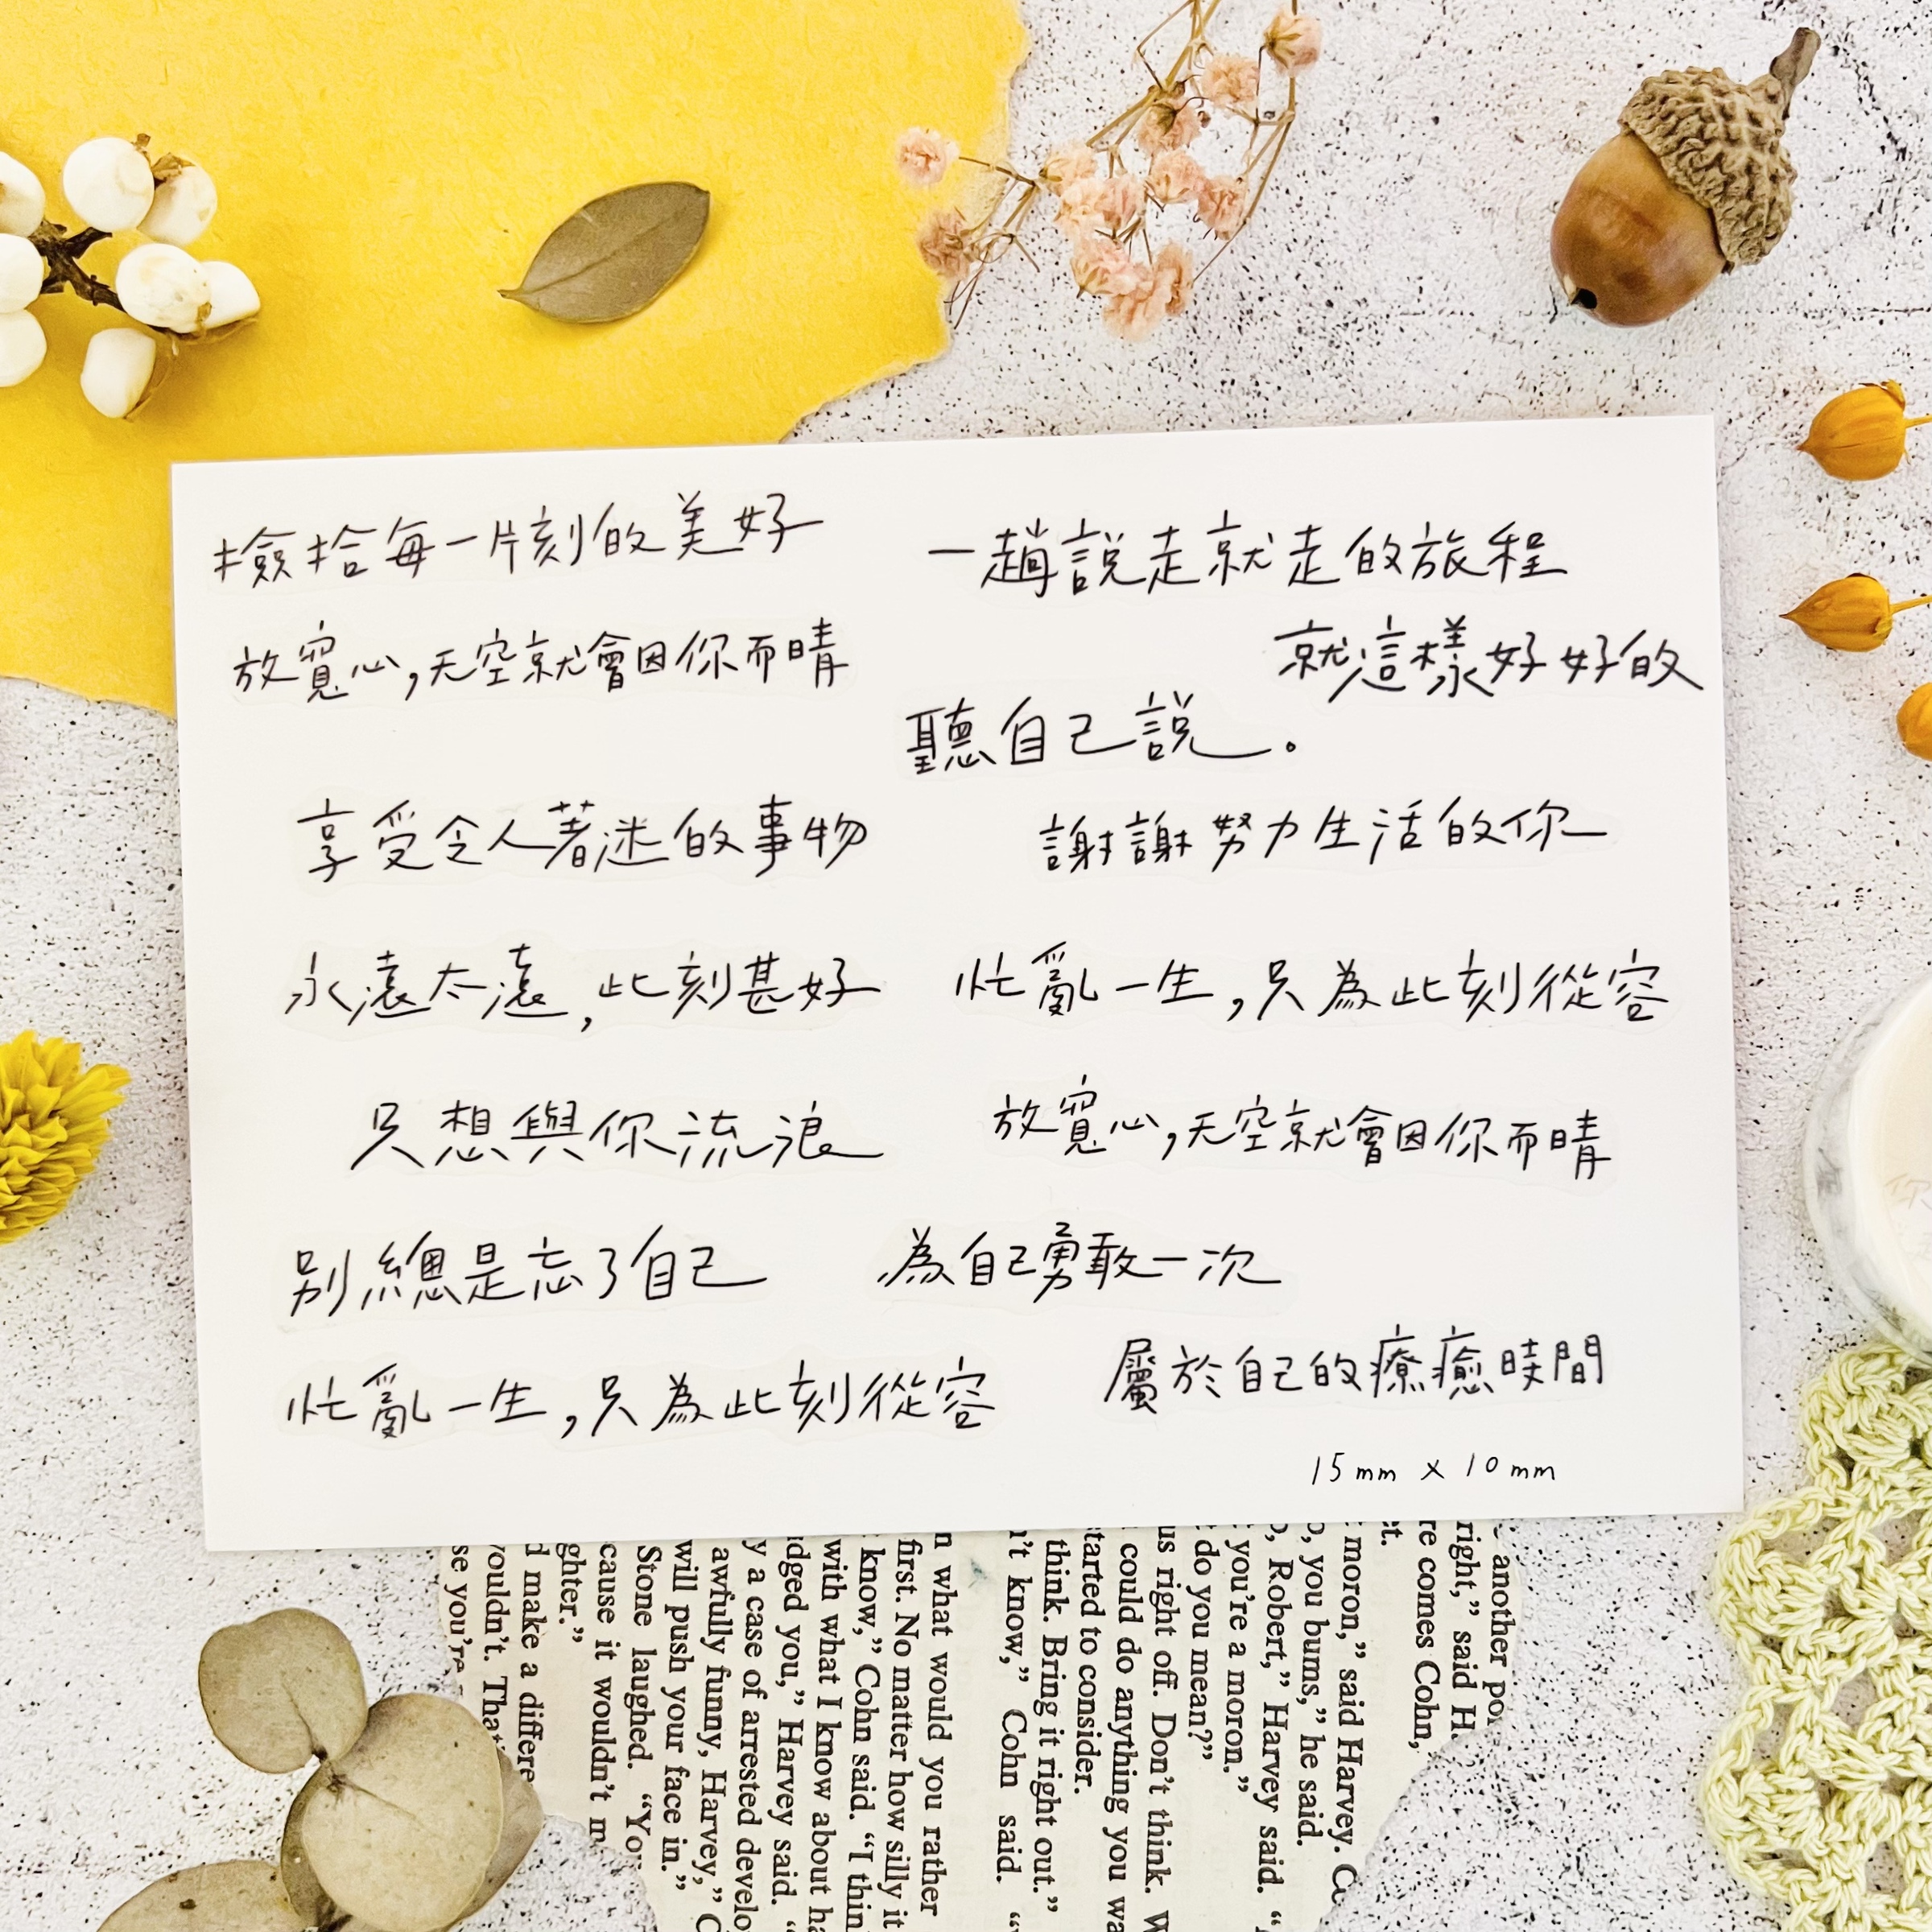 撿拾每一片刻的美好
一趟說走就走的旅程
放寬心,天空就會因你而晴
就這樣好好的
聽自己說。
享受令人著迷的事物
謝謝努力生活的你
永遠太遠,此刻甚好
忙亂一生,只為此刻從容
只想與你流浪
放寬心,天空就會因你而晴
別總是忘了自己
為自己勇敢一次
忙亂一生,只為此刻從容
屬於自己的療癒時間
15mm x 10mm
n what would you rather
first. No matter how silly it
know,” Cohn said. “I thin
with what I know about ha
dged you,” Harvey said. “
y a case of arrested develo
awfully funny, Harvey,” C
will push your face in.”
Stone laughed. “You
cause it wouldn’t m
ghter.”
d make a differe
ouldn’t. That
se you’re
another po
right,” said H
re comes Cohn,
et.
moron,” said Harvey. Co
o, you bums,” he said.
o, Robert,” Harvey said. “
you’re a moron.”
do you mean?”
us right off. Don’t think. W
could do anything you wa
tarted to consider.
think. Bring it right out.”
n’t know,” Cohn said. “